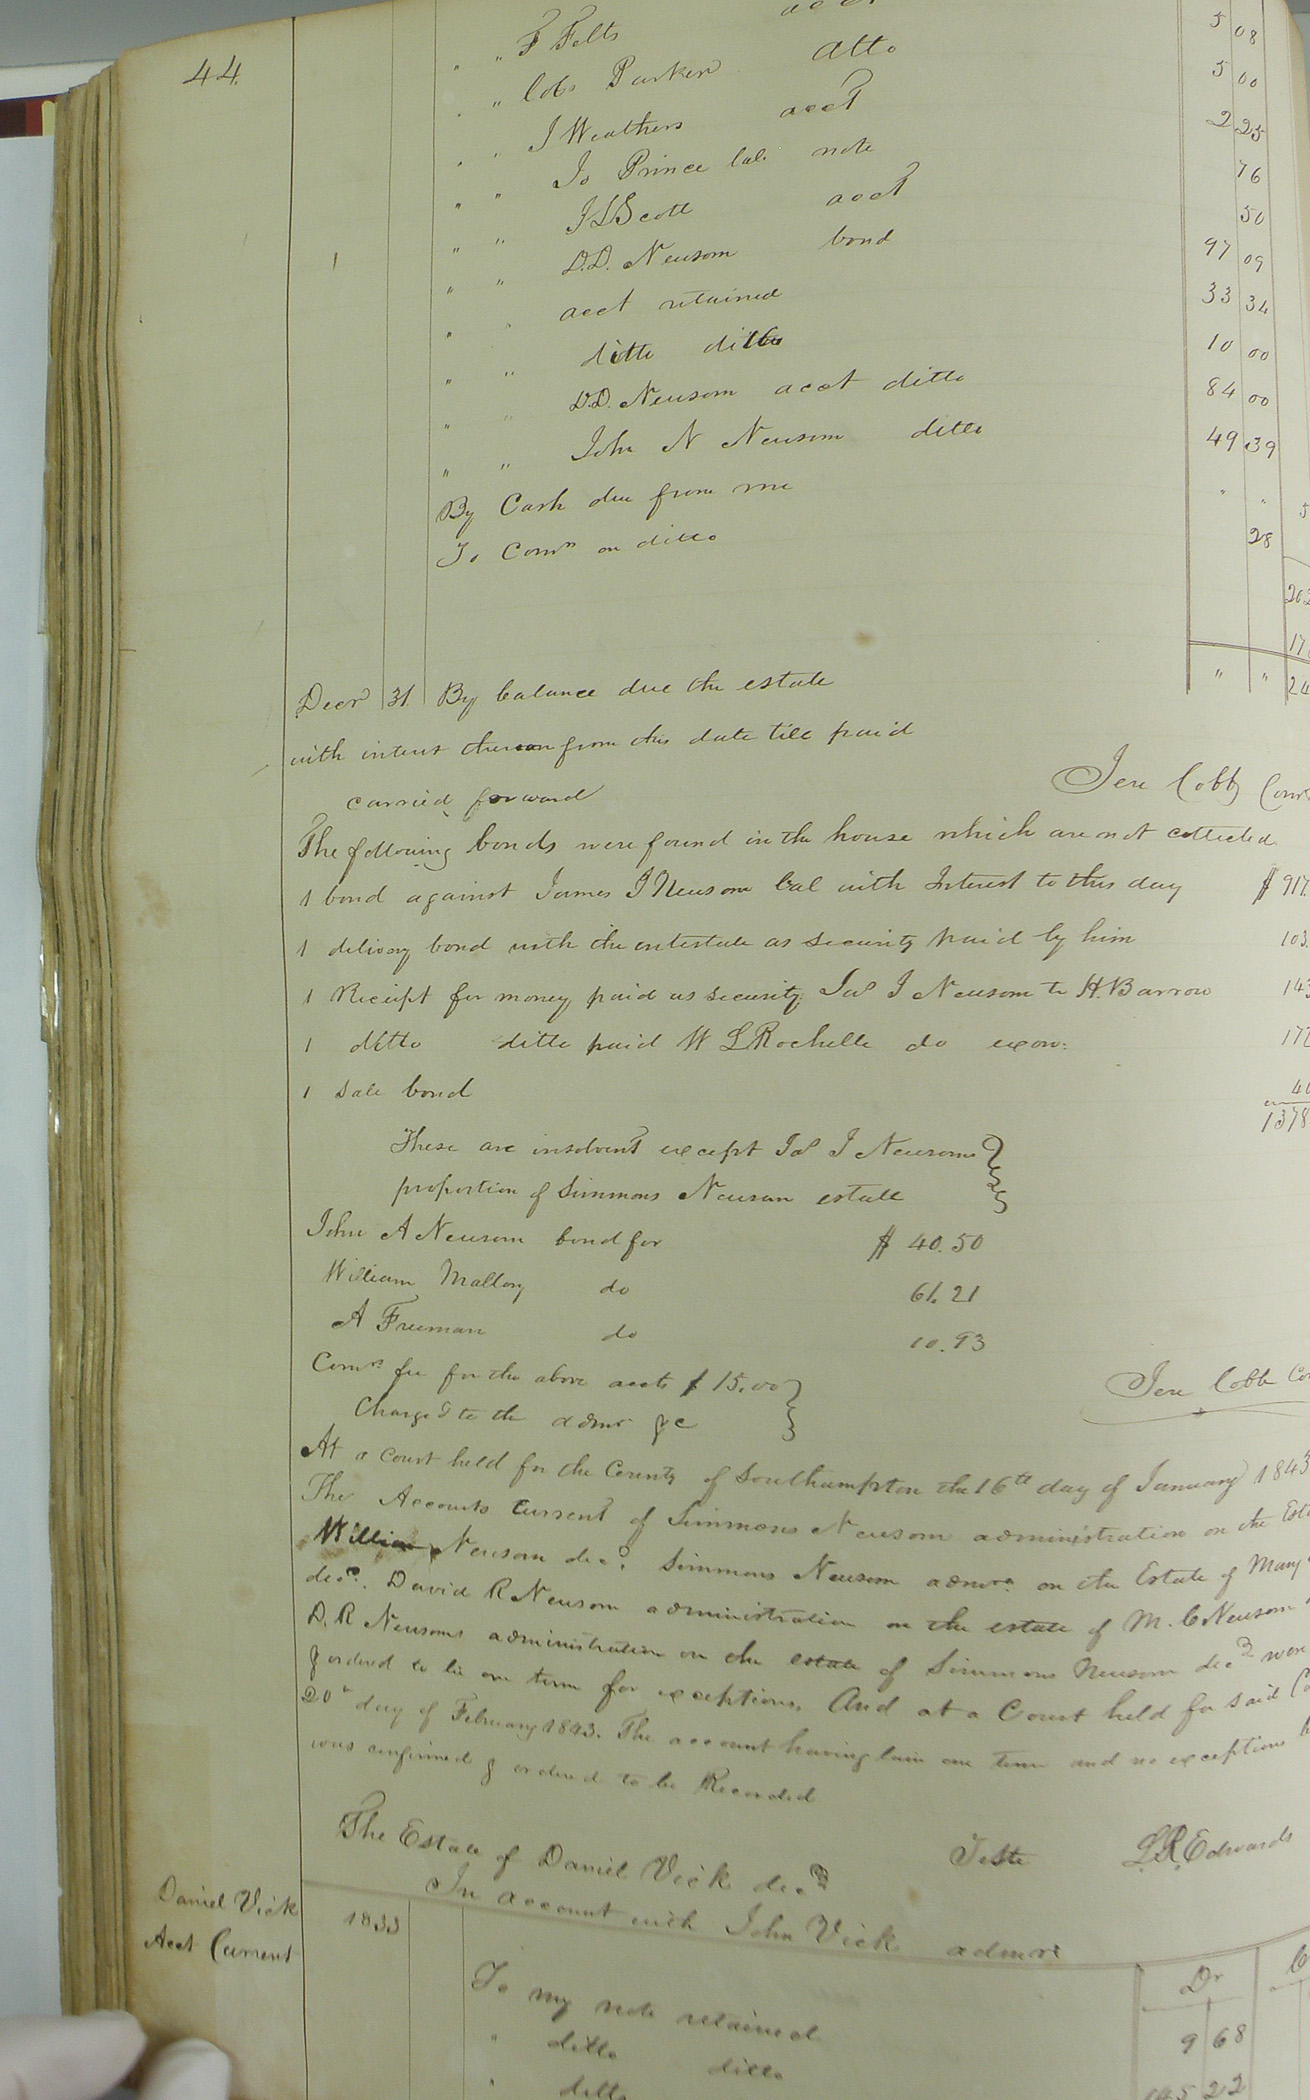 44.
" " F Felts acct 5 08
" " Cobs Parker atto 5 00
" " J Weathers acct 2 25
" " Jo Prince bal. note 76
" " J L Scott acct 50
1 " " D.D. Neusom bond 97 09
" " acct retained 33 34
" " ditto ditto 10 00
" " D.D. Neusom acct ditto 84 00
" " John N Neusom ditto 49 39
By Cash due from me " " 5
To Comn on ditto 28
202
17
Decr 31 By balance due the estate " " 24
with interest thereon from this date till paid
carried forward Jere Cobb Com
The following bonds were found in the house which are not collected
1 bond against James J Neusom bal with Interest to this day $ 917.
1 delivery bond with the intestate as security paid by him 103.
1 Receipt for money paid as security Jas J Neusom to H. Barrow 143
1 ditto ditto paid W L Rochelle do exor: 172
1 Sale bond 40
1378
These are insolvent except Jas J Neusoms
proportion of Simmons Neusom estate
John A Neusom bond for $ 40.50
William Mallory do 61.21
A Freeman do 10.93
Comrs fee for the above accts $ 15.00
Charged to the admr &c Jere Cobb Co
At a Court held for the County of Southampton the 16th day of January 1843
The Accounts Current of Simmons Neusom administration on the Est
William Neusom decd. Simmons Neusom admrs on the Estate of Mary
decd. David R Neusom administration on the estate of M. C Neusom
D. R Neusoms administration on the estate of Simmons Neusom decd were
& ordered to lie one term for exceptions. And at a Court held for said Co
20th day of February 1843. The account having lain one term and no exceptions
was confirmed & ordered to be Recorded
Teste L R Edwards
The Estate of Daniel Vick decd
In account with John Vick admr
Daniel Vick
Acct Current
1833 Dr
To my note retained 9 68
" ditto ditto 145 22
" ditto